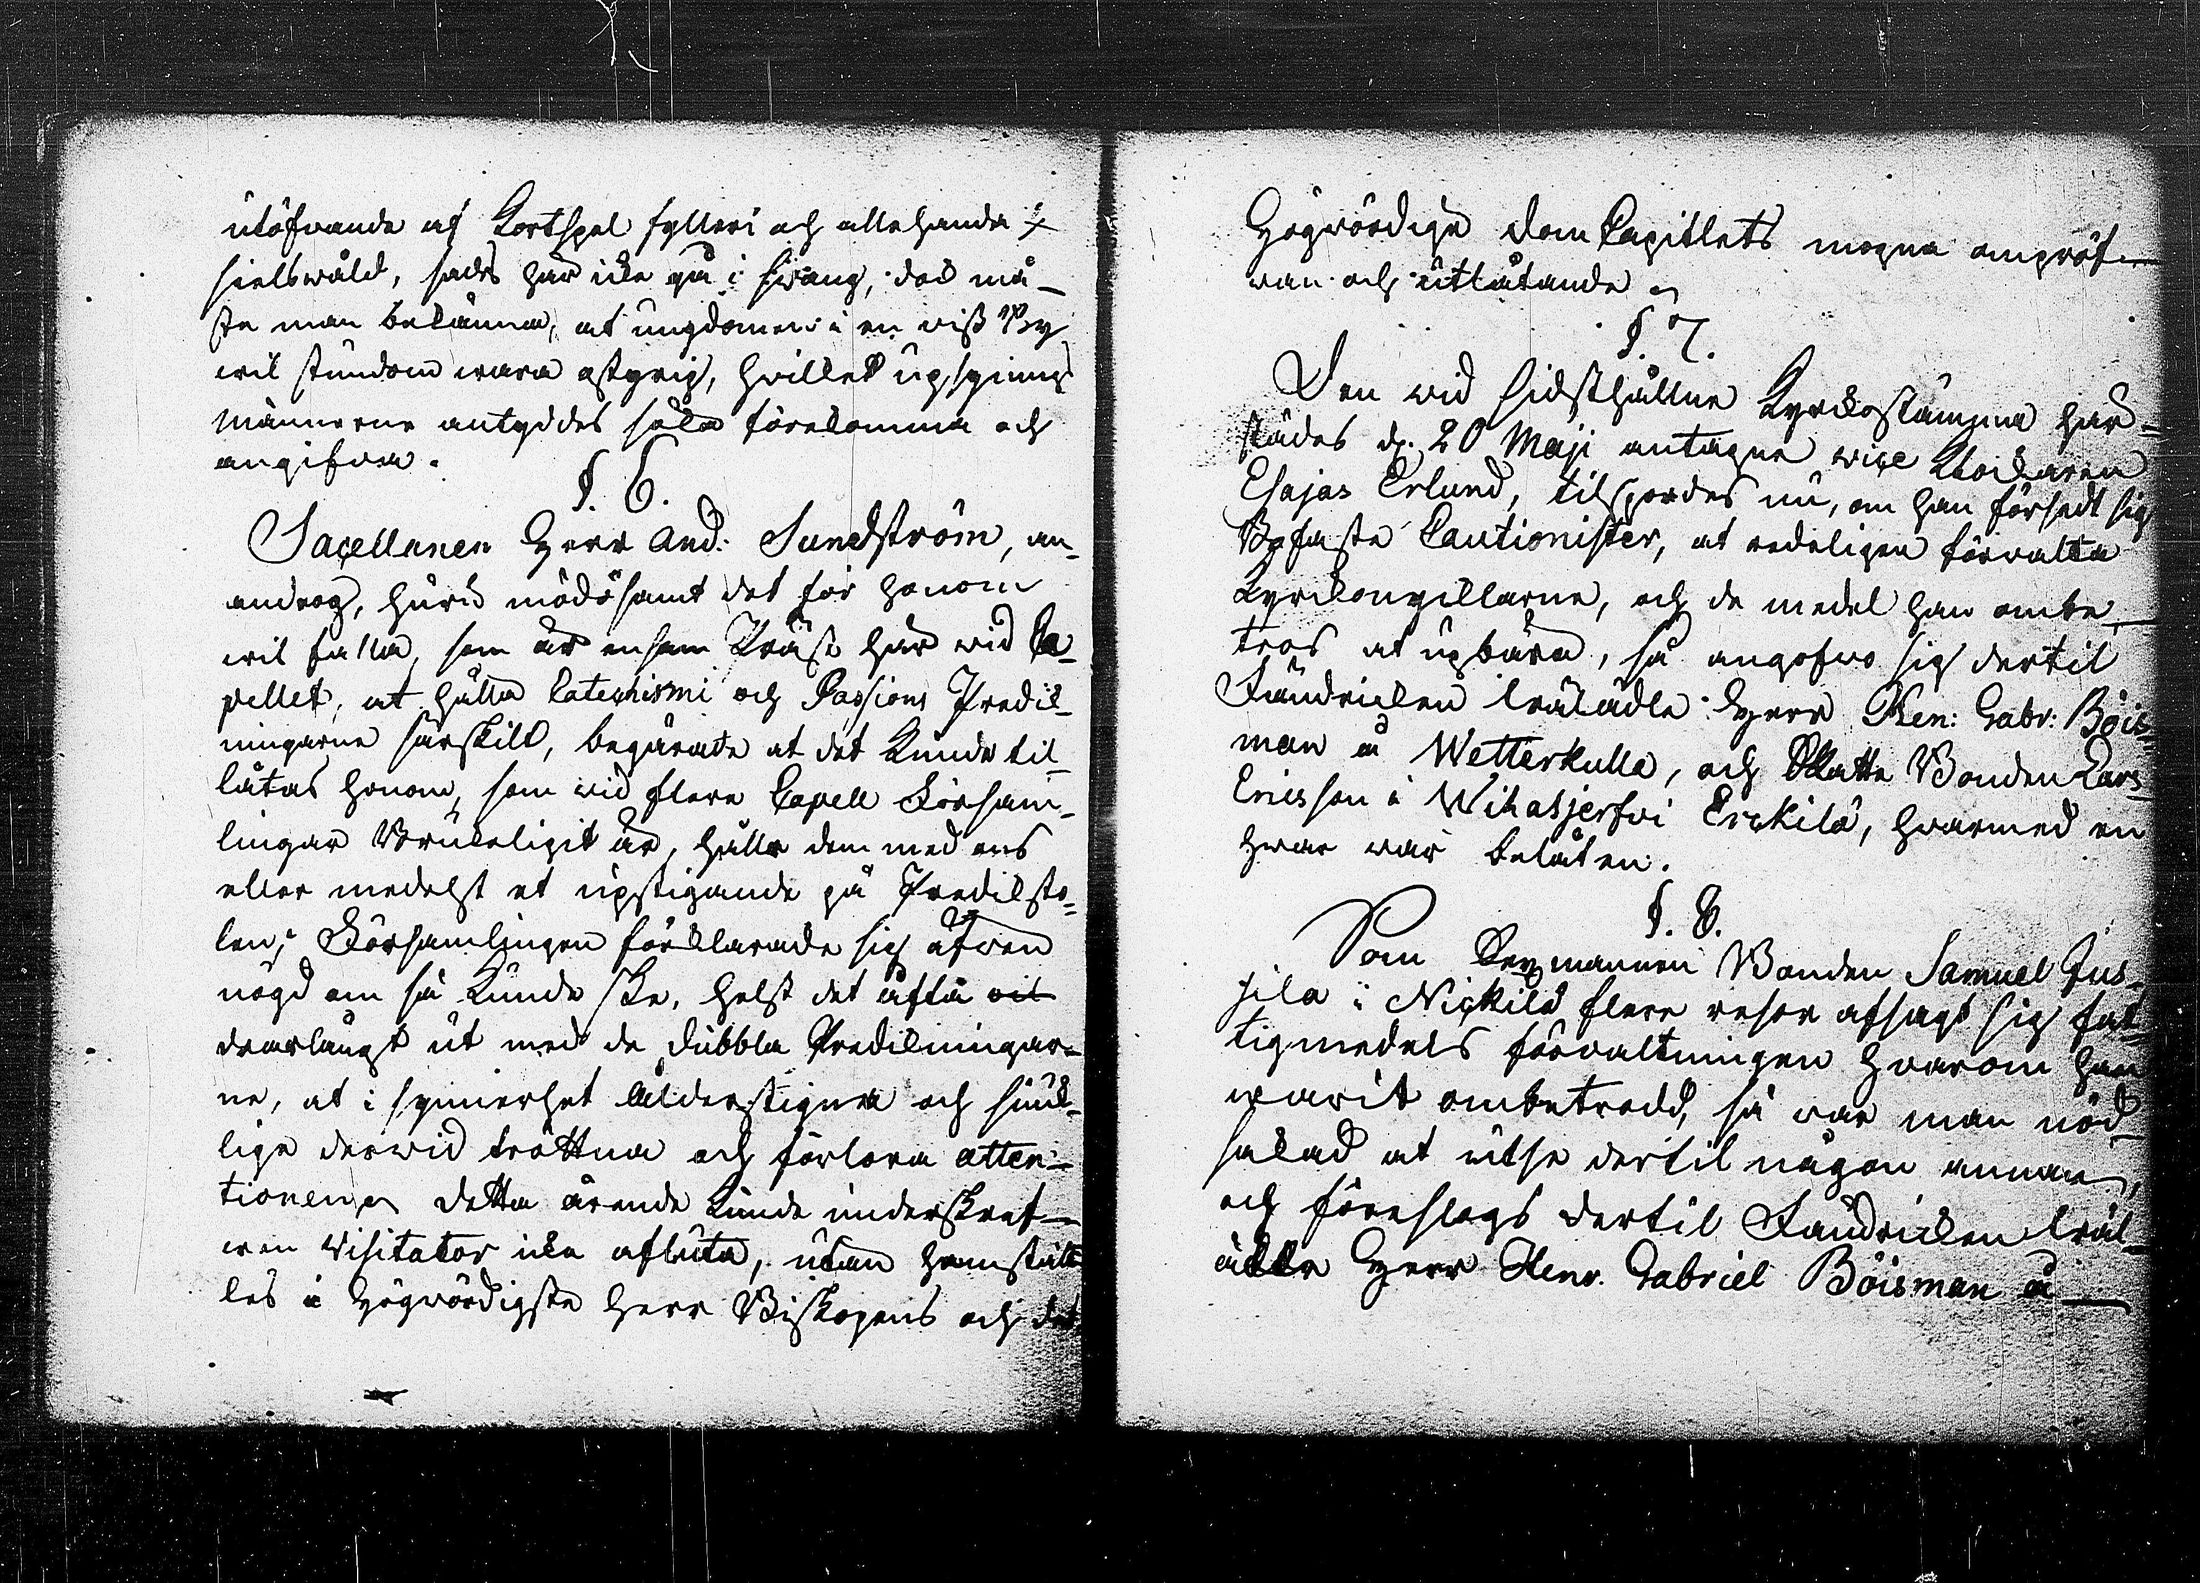 utöfvande af Kortspel fylleri och allehanda
sielfswåld, sades här icke gå i swang, dock må-
ste man bekänna, at ungdomen i en viss By
vil stundom wara ostyrig, hvilket upsynings
männerne antyddes söka förekomma och
angifva.
§. 6.
Sacellanen Herr And: Sundström, an-
androg, huru mödosamt det för honom
vil falla, som är ensam Präst här vid Ca-
pellet, at hålla Catechismi och Passions Predik-
ningarne särskilt, begärade at det kunde til-
låtas honom, som vid flere Capell Försam-
lingar Brukeligit är, hålla dem med ens
eller medelst et upstigande på Prediksto-
len; Församlingen förklarade sig äfven
nögd om så kunde ske, helst det ofta
drar långt ut med de dubbla Predikningar-
ne, at i synnerhet ålderstigna och sjuk-
lige dervid tröttna och förlora atten-
tionen; detta ärende kunde underskref-
ven Visitator icke afsluta, utan hemstäl-
les å Högvördigste Herr Biskopens och det
Högvördige Dom Capitlets mogna ompröf-
van och utlåtande
§. 7.
Den vid sidsthållne Kyrkostämma här-
städes d. 20 Maji antagne vice Klockaren
Esajas Erlund, tilspordes nu, om han försedt sig
Bofaste Cautionister, at redeligen förvalta
Kyrkonycklarne, och de medel han ombe-
tros at upbära, så angofvo sig dertil
Fändricken Wälädle Herr Hen: Gabr: Böis-
man å Wetterkulla, och Skatte Bonden Lars
Ericsson i Wihasjerfvi Erckilä, hvarmed en
hvar var belåten.
§. 8.
Som Sexmannen Bonden Samuel Jus-
sila i Nickilä flere resor afsagt sig fat-
tigmedels förvaltningen hvarom han
warit ombetrodd, så var man nöd-
sakad at utse dertil någon annan,
och föreslogs dertil Fändricken Wäl-
ädle Herr Henr. Gabriel Böisman å